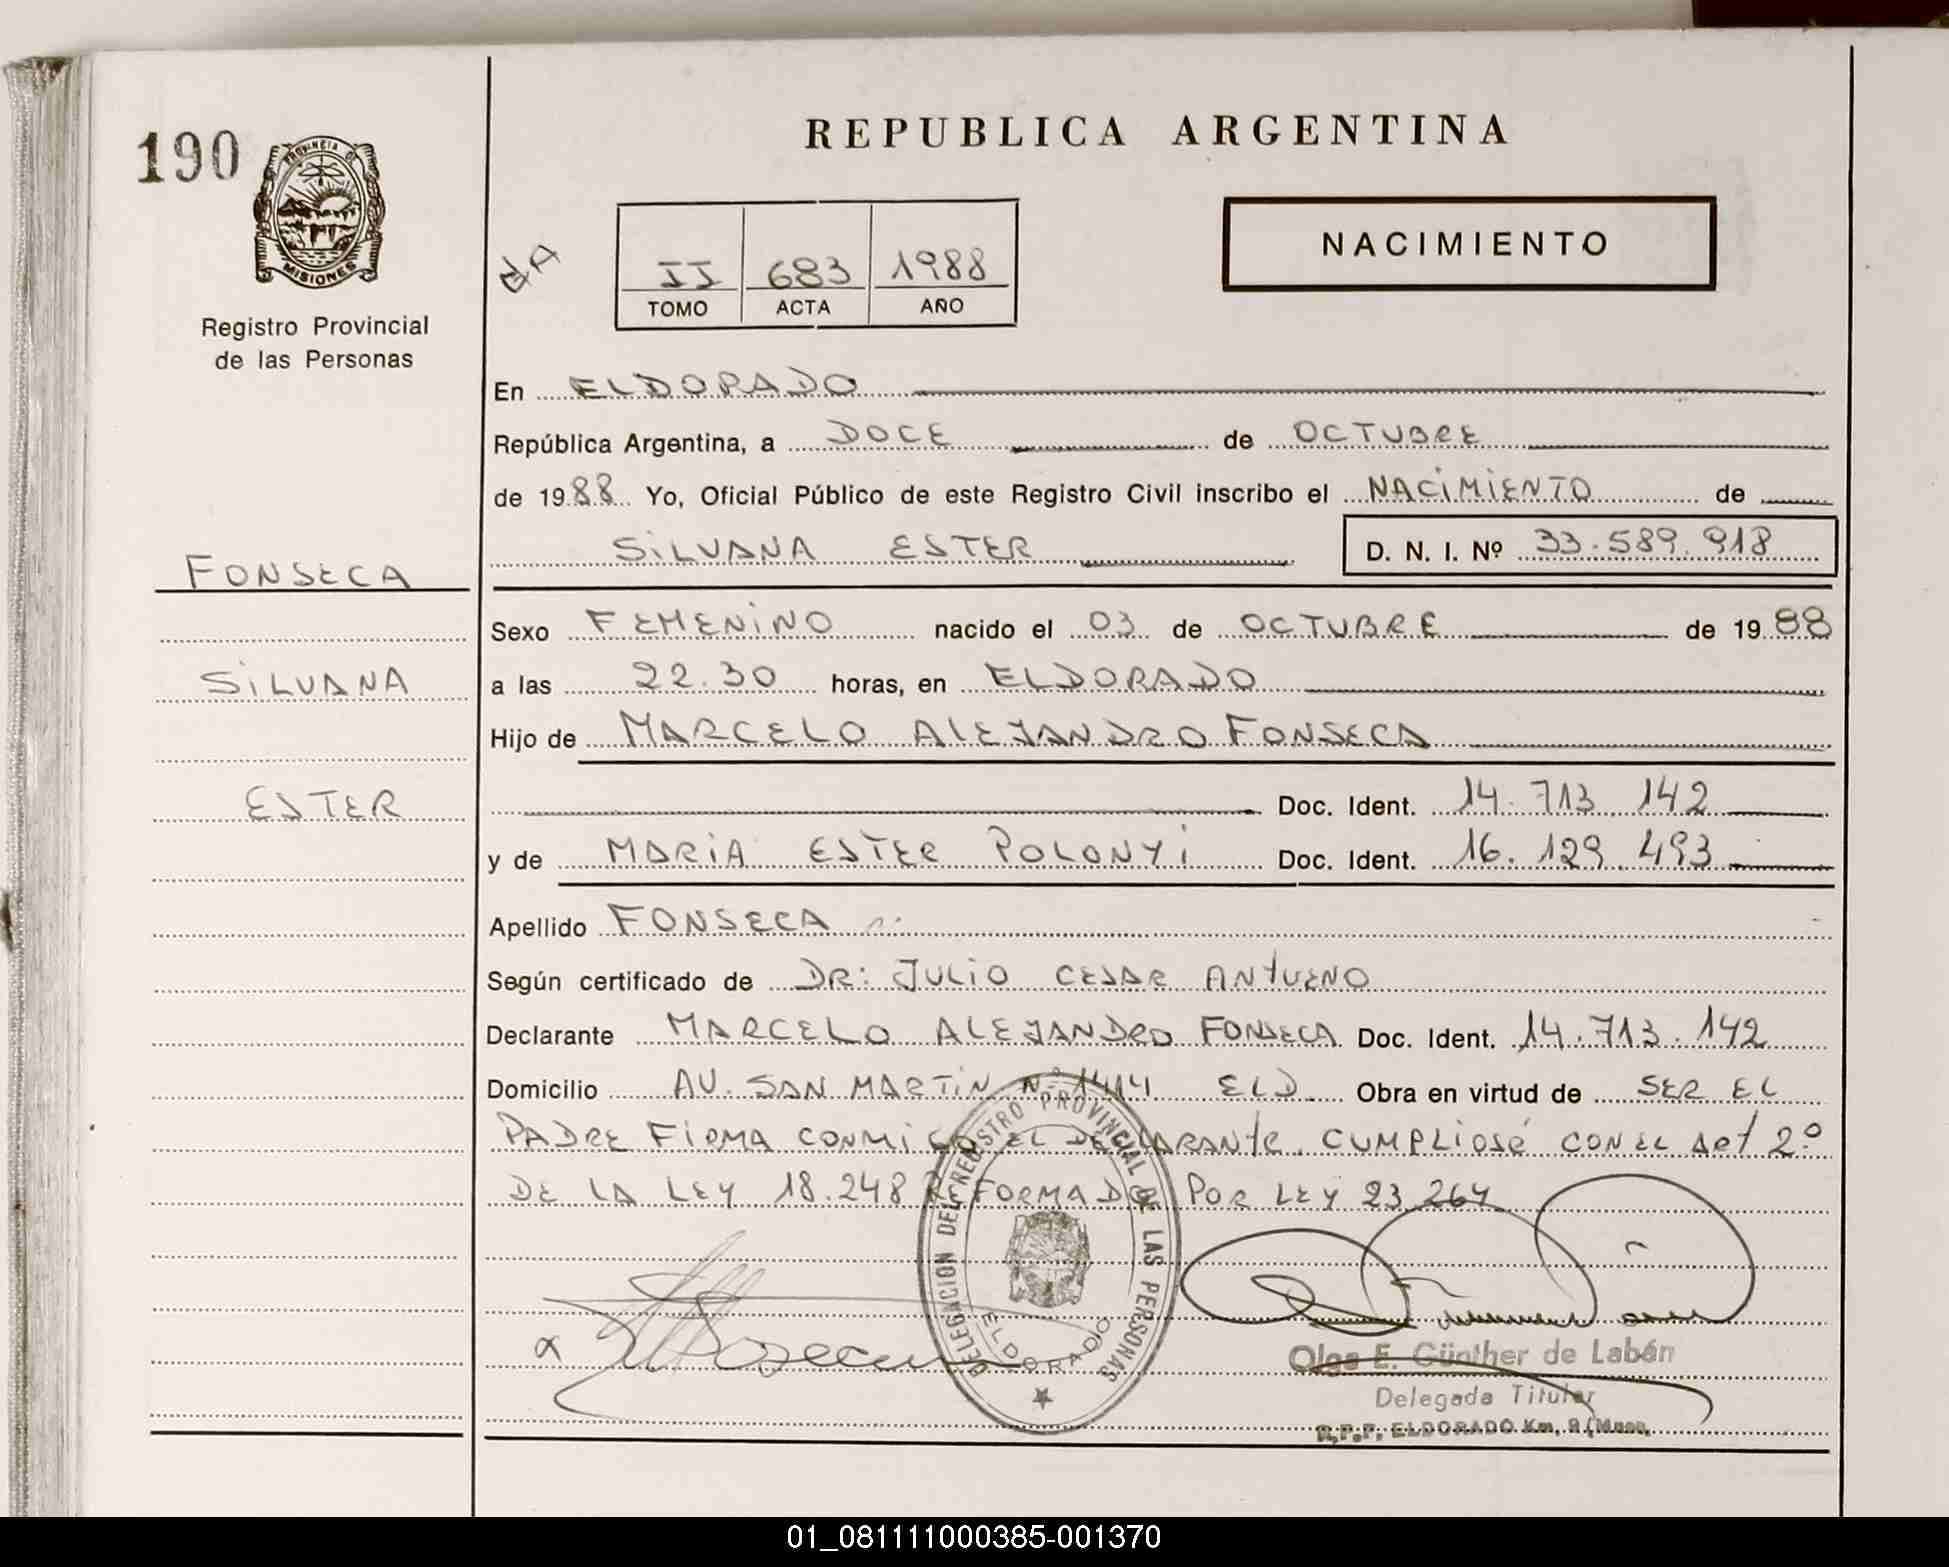 190
PROVINCIA DE
MISIONES
Registro Provincial
de las Personas
FONSECA
SILVANA
ESTER
REPUBLICA ARGENTINA
II 683 1988
TOMO ACTA AÑO
NACIMIENTO
En ELDORADO
República Argentina, a DOCE de OCTUBRE
de 1988 Yo, Oficial Público de este Registro Civil inscribo el NACIMIENTO de
SILVANA ESTER D. N. I. Nº 33.589.918
Sexo FEMENINO nacido el 03 de OCTUBRE de 1988
a las 22.30 horas, en ELDORADO
Hijo de MARCELO ALEJANDRO FONSECA
Doc. Ident. 14.713.142
y de MARIA ESTER POLONYI Doc. Ident. 16.129.493
Apellido FONSECA
Según certificado de DR: JULIO CESAR ANTUENO
Declarante MARCELO ALEJANDRO FONSECA Doc. Ident. 14.713.142
Domicilio AV. SAN MARTIN Nº 1414 ELD. Obra en virtud de SER EL
PADRE FIRMA CONMIGO EL DECLARANTE. CUMPLIOSÉ CON EL ART 2º
DE LA LEY 18.248 REFORMADO POR LEY 23.264
DELEGACION DEL REGISTRO PROVINCIAL DE LAS PERSONAS
ELDORADO
Olga E. Günther de Labán
Delegada Titular
R.P.P. ELDORADO Km. 9 (Mnes.
01_081111000385-001370